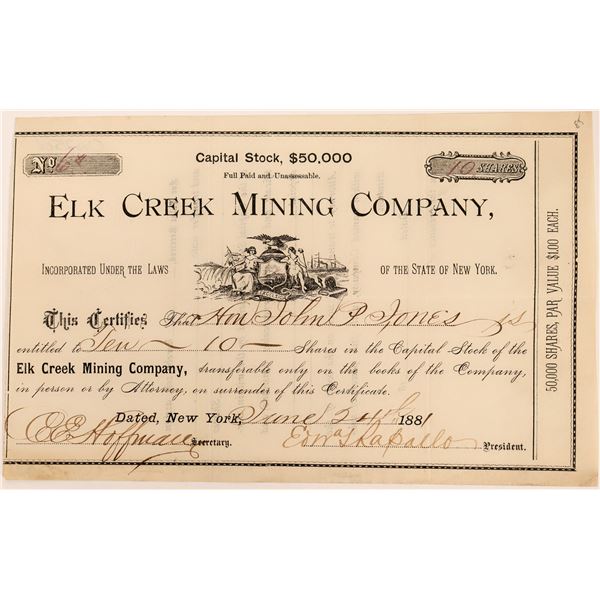 No
Capital Stock, $50,000
10 SHARES
Full Paid and Unassessable.
ELK CREEK MINING COMPANY,
INCORPORATED UNDER THE LAWS OF THE STATE OF NEW YORK.
This Certifies That Hon John P Jones is
entitled to Ten — 10 — Shares in the Capital Stock of the
Elk Creek Mining Company, transferable only on the books of the Company,
in person or by Attorney, on surrender of this Certificate.
Dated, New York, June 24th 1881
C E Hoffman Secretary. President.
50,000 SHARES, PAR VALUE $1.00 EACH.